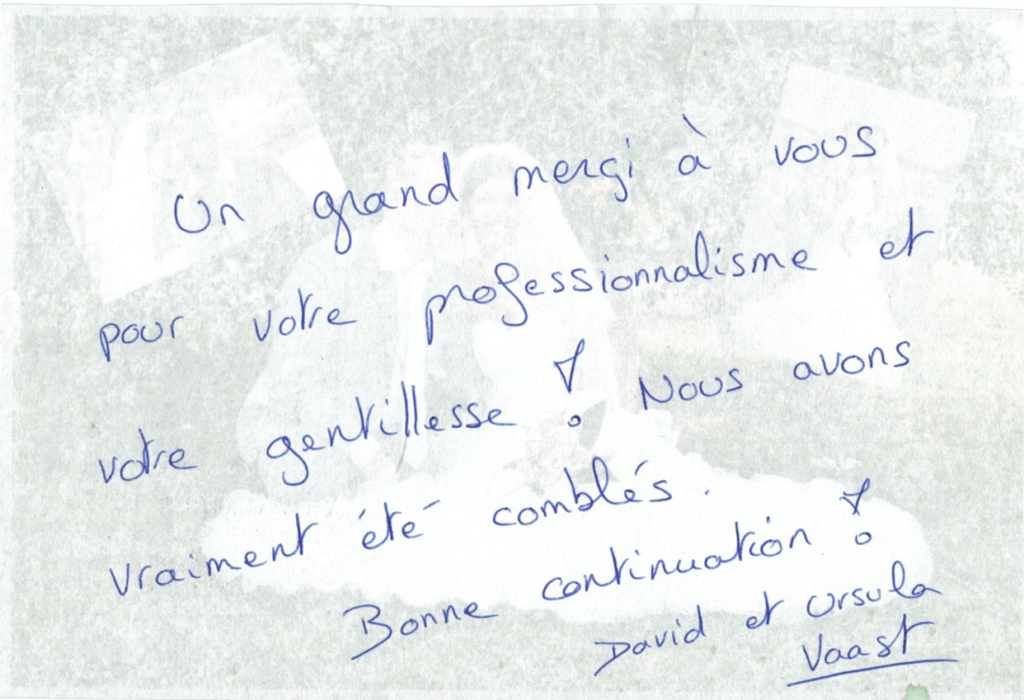 Un grand merçi à vous
pour votre professionnalisme et
votre gentillesse ! Nous avons
vraiment été comblés.
Bonne continuation !
David et Ursula
Vaast